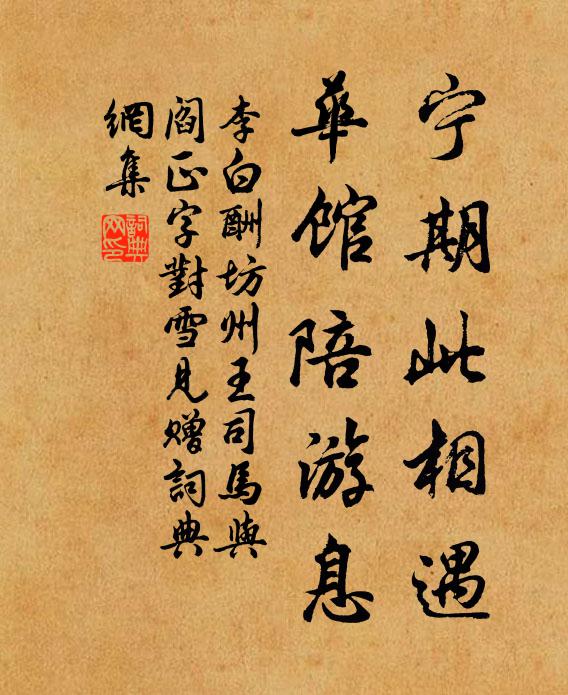 宁期此相遇
華馆陪游息
李白酬坊州王司馬與
閻正字對雪見贈詞典
網集
詞典
网印